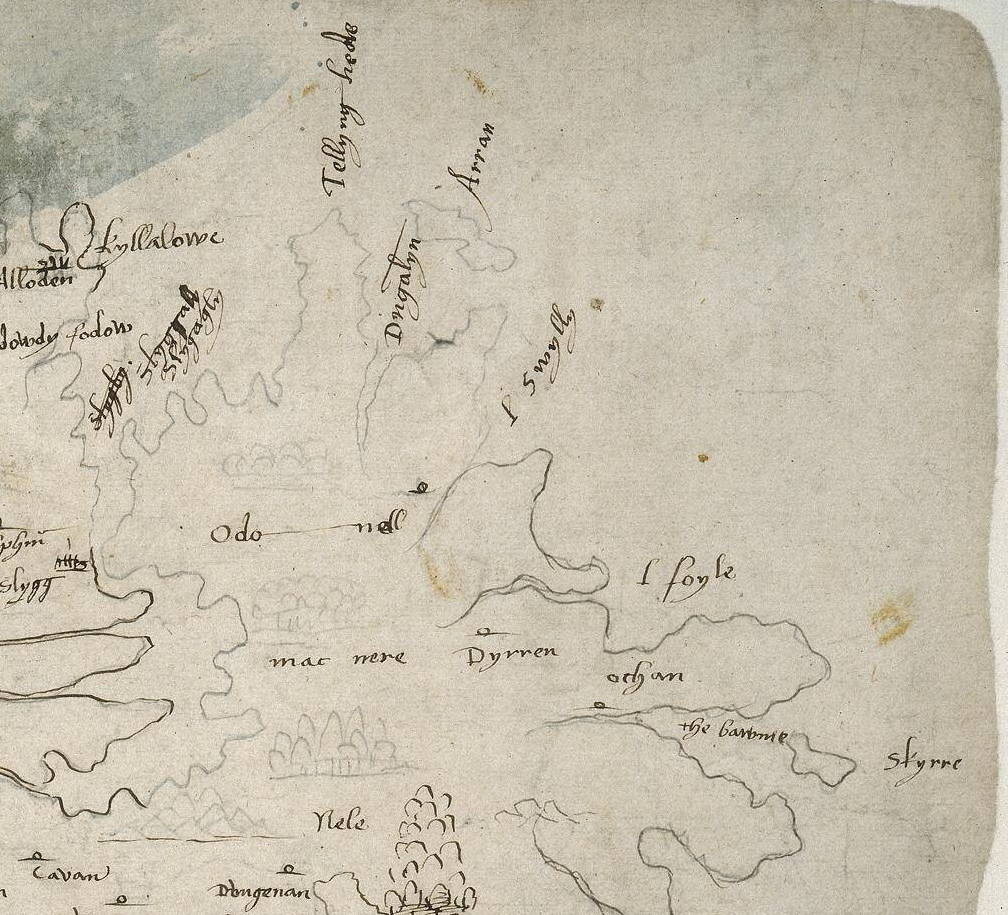 Tellyng hede
Arran
Kyllalowe
Alloden
Dngalyn
dowdy fodow
l Swylly
Odo nell
Slygg
l foyle
mac nere
Dyrren
ochan
the bawnne
Skyrre
Nele
Cavan
Dongenan